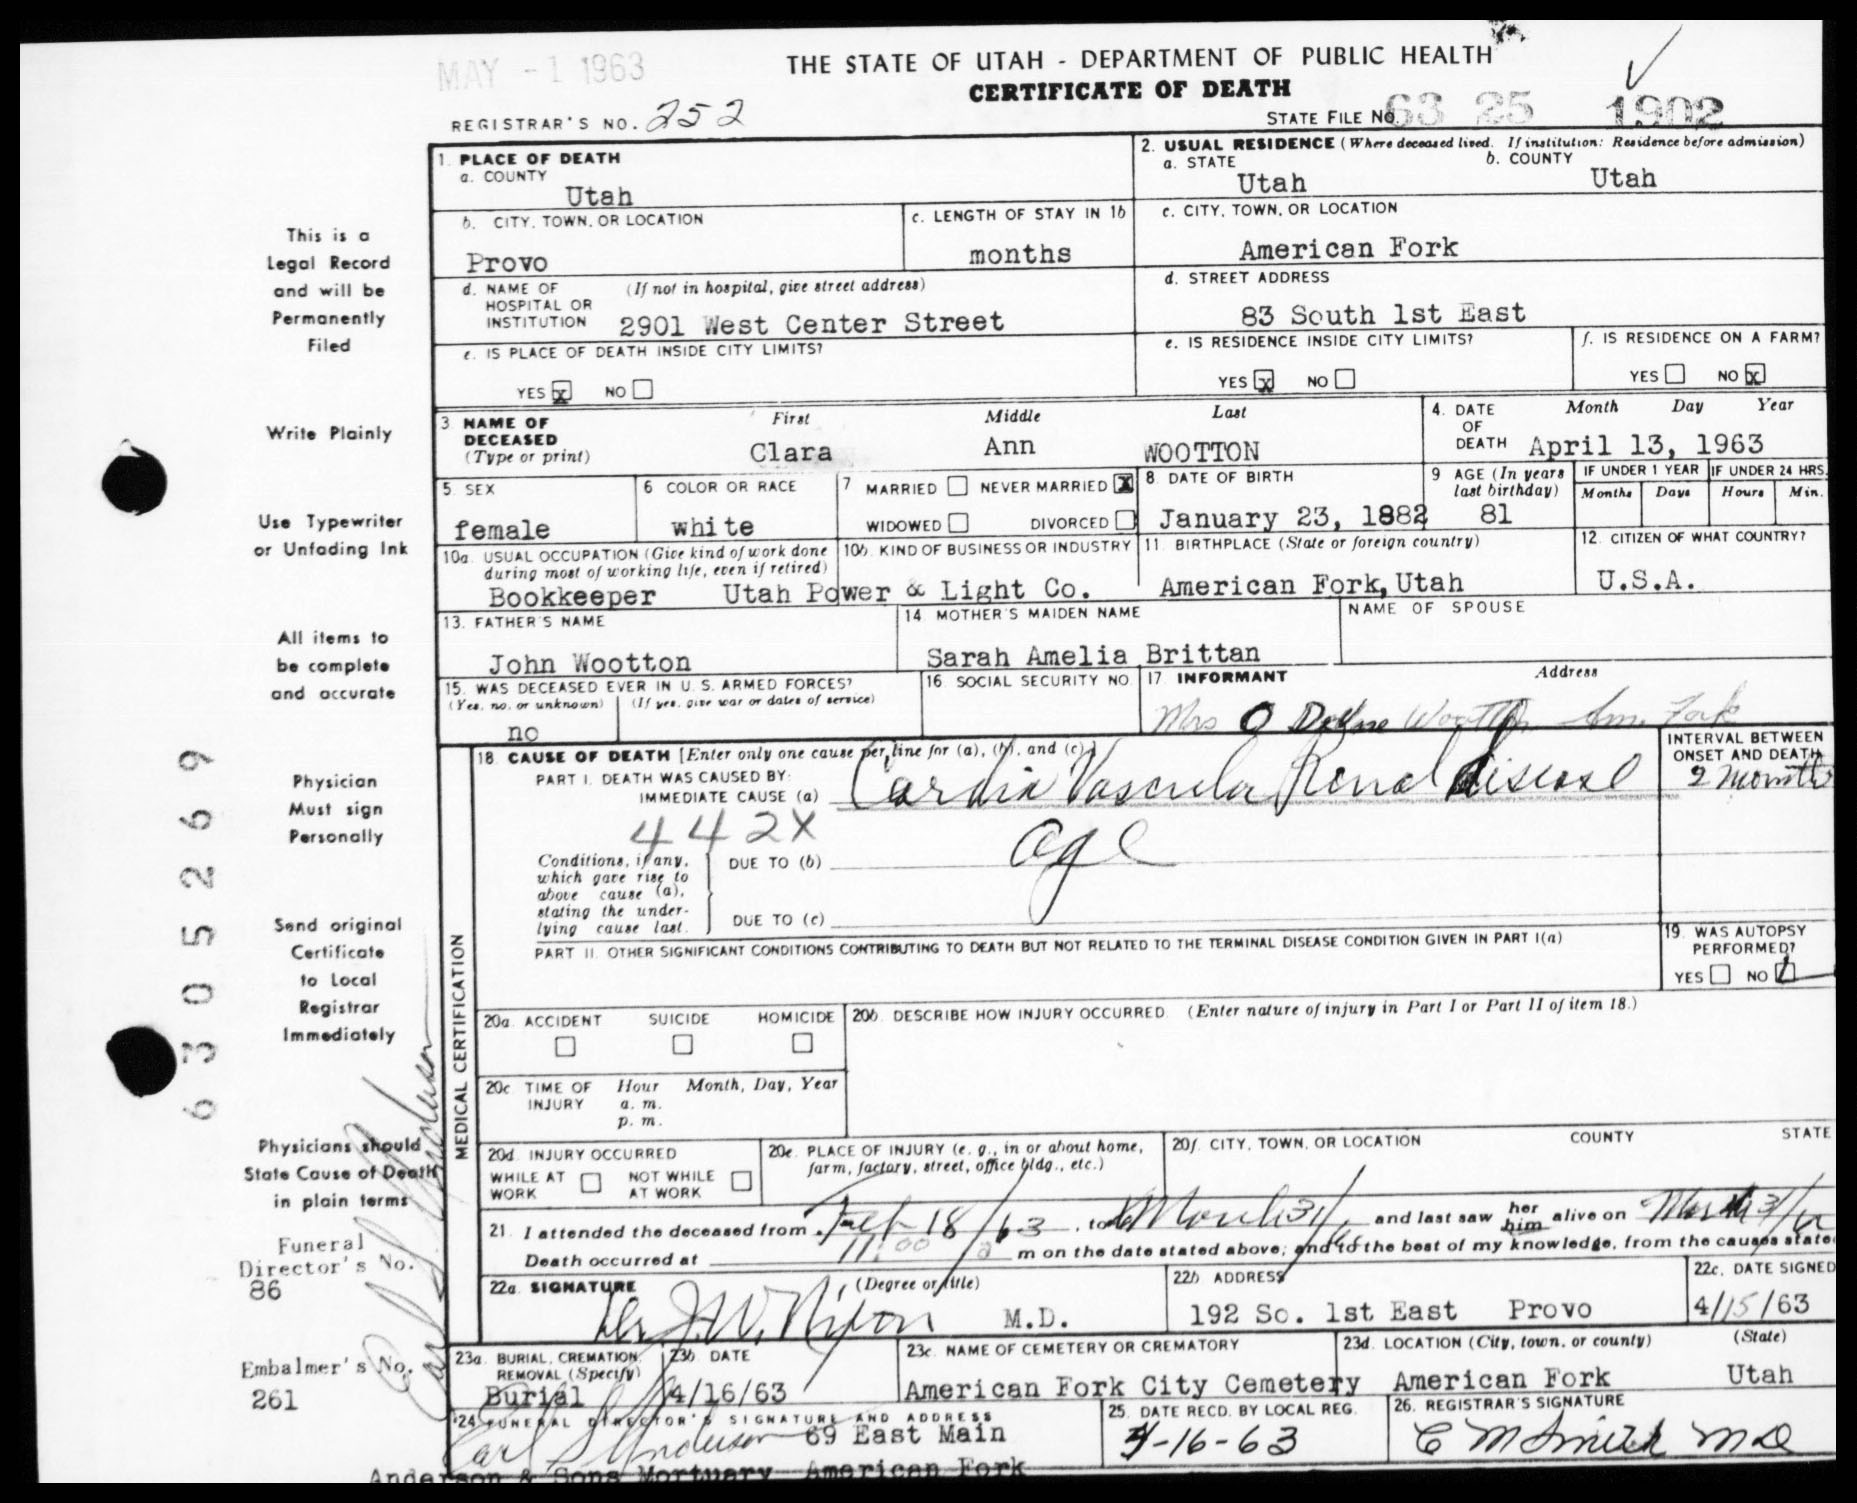 MAY - 1 1963
THE STATE OF UTAH - DEPARTMENT OF PUBLIC HEALTH
CERTIFICATE OF DEATH
REGISTRAR'S NO. 252
STATE FILE NO. 63 25 1902
1. PLACE OF DEATH
a. COUNTY
Utah
2. USUAL RESIDENCE (Where deceased lived. If institution: Residence before admission)
a. STATE b. COUNTY
Utah Utah
b. CITY, TOWN, OR LOCATION
Provo
c. LENGTH OF STAY IN 1b
months
c. CITY, TOWN, OR LOCATION
American Fork
d. NAME OF HOSPITAL OR INSTITUTION (If not in hospital, give street address)
2901 West Center Street
d. STREET ADDRESS
83 South 1st East
e. IS PLACE OF DEATH INSIDE CITY LIMITS?
YES x NO
e. IS RESIDENCE INSIDE CITY LIMITS?
YES x NO
f. IS RESIDENCE ON A FARM?
YES NO x
3 NAME OF DECEASED (Type or print)
First Middle Last
Clara Ann WOOTTON
4. DATE OF DEATH Month Day Year
April 13, 1963
5. SEX
female
6 COLOR OR RACE
white
7 MARRIED NEVER MARRIED X
WIDOWED DIVORCED
8. DATE OF BIRTH
January 23, 1882
9 AGE (In years last birthday)
81
IF UNDER 1 YEAR IF UNDER 24 HRS.
Months Days Hours Min.
10a. USUAL OCCUPATION (Give kind of work done during most of working life, even if retired)
Bookkeeper
10b. KIND OF BUSINESS OR INDUSTRY
Utah Power & Light Co.
11. BIRTHPLACE (State or foreign country)
American Fork, Utah
12. CITIZEN OF WHAT COUNTRY?
U.S.A.
13. FATHER'S NAME
John Wootton
14 MOTHER'S MAIDEN NAME
Sarah Amelia Brittan
NAME OF SPOUSE
15. WAS DECEASED EVER IN U. S. ARMED FORCES?
(Yes, no, or unknown) (If yes, give war or dates of service)
no
16 SOCIAL SECURITY NO.
17. INFORMANT Address
Mrs O Wootton Am. Fork
MEDICAL CERTIFICATION
18. CAUSE OF DEATH [Enter only one cause per line for (a), (b), and (c)]
PART I. DEATH WAS CAUSED BY:
IMMEDIATE CAUSE (a) Cardio Vascular Renal disease
INTERVAL BETWEEN ONSET AND DEATH
2 months
442X
Conditions, if any, which gave rise to above cause (a), stating the under-lying cause last.
DUE TO (b) age
DUE TO (c)
PART II. OTHER SIGNIFICANT CONDITIONS CONTRIBUTING TO DEATH BUT NOT RELATED TO THE TERMINAL DISEASE CONDITION GIVEN IN PART I(a)
19. WAS AUTOPSY PERFORMED?
YES NO
20a. ACCIDENT SUICIDE HOMICIDE
20b. DESCRIBE HOW INJURY OCCURRED. (Enter nature of injury in Part I or Part II of item 18.)
20c TIME OF INJURY Hour Month, Day, Year
a. m.
p. m.
20d. INJURY OCCURRED
WHILE AT WORK NOT WHILE AT WORK
20e. PLACE OF INJURY (e. g., in or about home, farm, factory, street, office bldg., etc.)
20f. CITY, TOWN, OR LOCATION COUNTY STATE
21. I attended the deceased from Feb 18/63, to March 31/ and last saw her him alive on March 31/
Death occurred at 11:00 a m on the date stated above; and to the best of my knowledge, from the causes state
22a. SIGNATURE (Degree or title)
Dr J. W. Nixon M.D.
22b ADDRESS
192 So. 1st East Provo
22c. DATE SIGNED
4/15/63
23a. BURIAL, CREMATION, REMOVAL (Specify)
Burial
23b DATE
4/16/63
23c. NAME OF CEMETERY OR CREMATORY
American Fork City Cemetery
23d. LOCATION (City, town, or county) (State)
American Fork Utah
24 FUNERAL DIRECTOR'S SIGNATURE AND ADDRESS
Earl S Anderson 69 East Main
Anderson & Sons Mortuary American Fork
25. DATE RECD. BY LOCAL REG.
4-16-63
26. REGISTRAR'S SIGNATURE
C M Smith MD
This is a
Legal Record
and will be
Permanently
Filed
Write Plainly
Use Typewriter
or Unfading Ink
All items to
be complete
and accurate
Physician
Must sign
Personally
Send original
Certificate
to Local
Registrar
Immediately
Physicians should
State Cause of Death
in plain terms
Funeral
Director's No.
86
Embalmer's No.
261
Earl S. Anderson
6305269